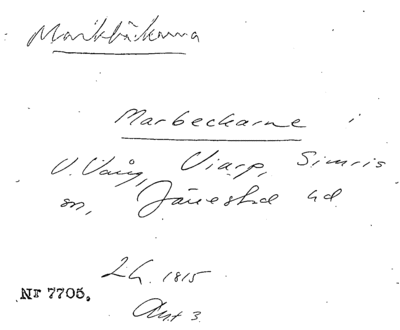 Markbäckarna
Marbeckarne i
V. Vång, Viarp, Simris
sn, Järrestad hd
LH. 1815
Nr 7705.
Akt 3